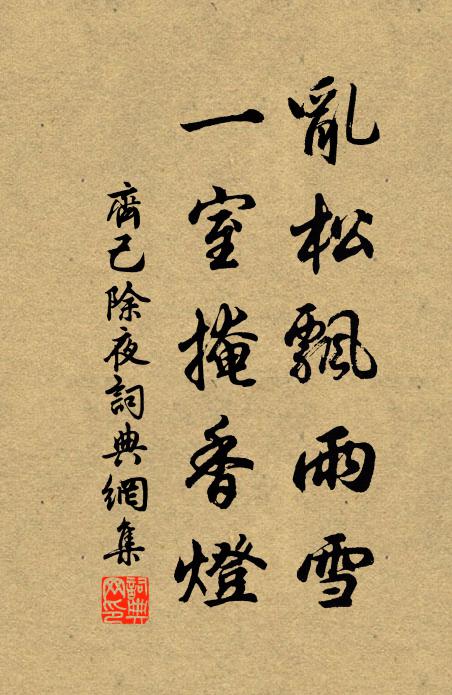 亂松飄雨雪
一室掩香燈
齊己除夜詞典網集
詞典
网印